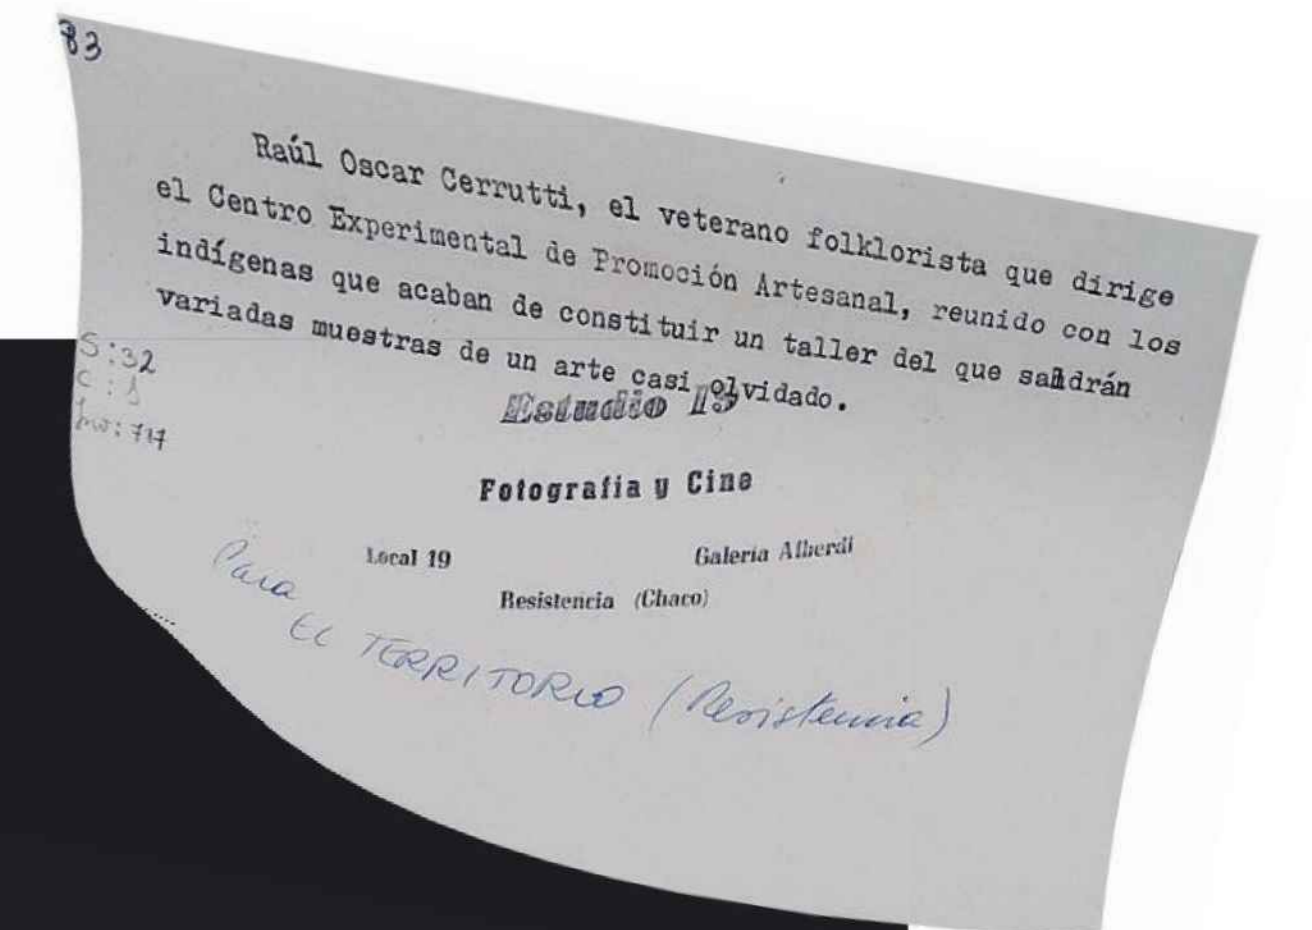 83
Raúl Oscar Cerrutti, el veterano folklorista que dirige
el Centro Experimental de Promoción Artesanal, reunido con los
indígenas que acaban de constituir un taller del que saldrán
variadas muestras de un arte casi olvidado.
S:32
C:1
Inv:717
Estudio 19
Fotografia y Cine
Local 19 Galería Alberdi
Resistencia (Chaco)
Para
EL TERRITORIO (Resistencia)